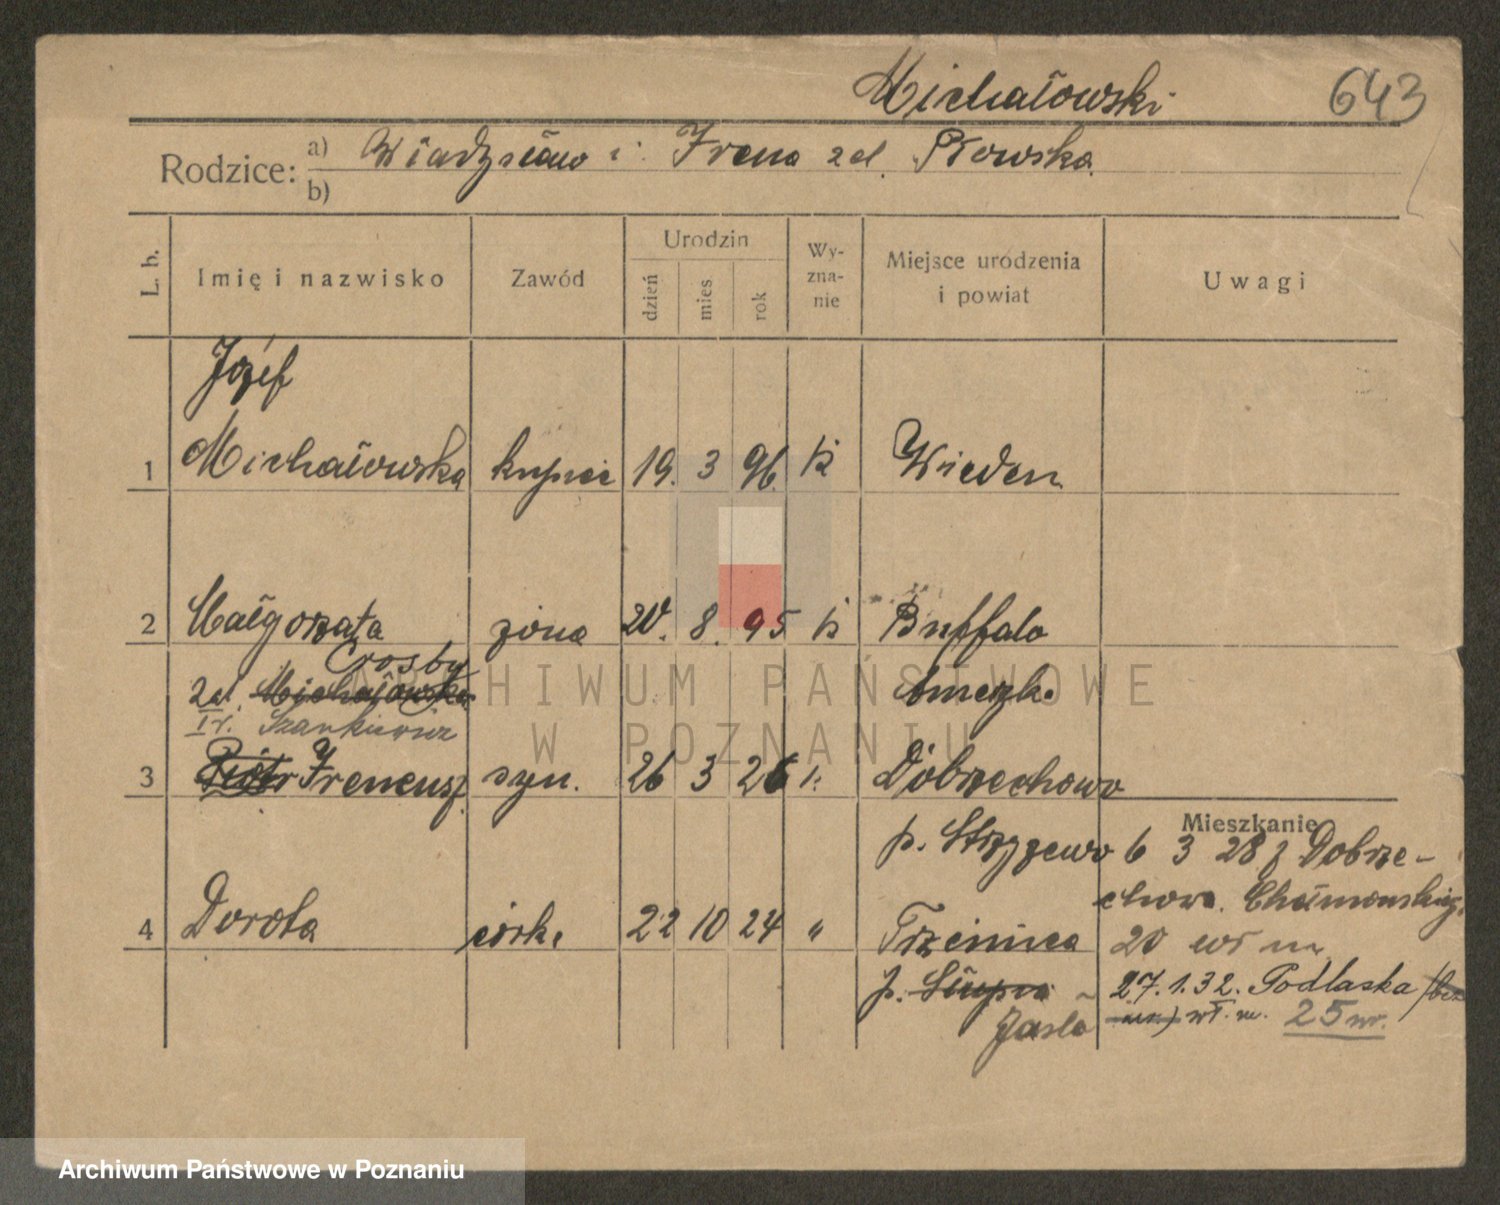 Michałowski 643
Rodzice: a) Władysław i Irena zd. Płowska
b)
L. b. Imię i nazwisko Zawód Urodzin dzień mies rok Wy-zna-nie Miejsce urodzenia i powiat Uwagi
Józef
1 Michałowska kupiec 19. 3 96. k Wieden
2 Małgorzata żona 20. 8. 95 k Buffalo
Crosby
zd. Michałowska Ameryk.
Szankiewicz
3 Piotr Ireneusz syn. 26 3 26 k. Dobrzechowo
Mieszkanie
p. Strzyżewo 6 3 28 z Dobrze-
chowa. Chełmońskieg.
4 Dorota córk. 22 10 24 " Trzcinica 20 wł m.
p. Słupca 27.1.32. Podlaska (bez
Jasło num) wł. m. 25 nr.
ARCHIWUM PAŃSTWOWE
W POZNANIU
Archiwum Państwowe w Poznaniu